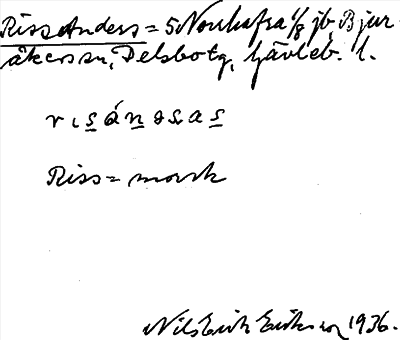 Riss Anders = 5 Norrhafra 1/8 jb, Bjur-
åkers sn, Delsbo tg, Gävleb. l.
Riss = morsk
Nils Erik Eriksson 1936.